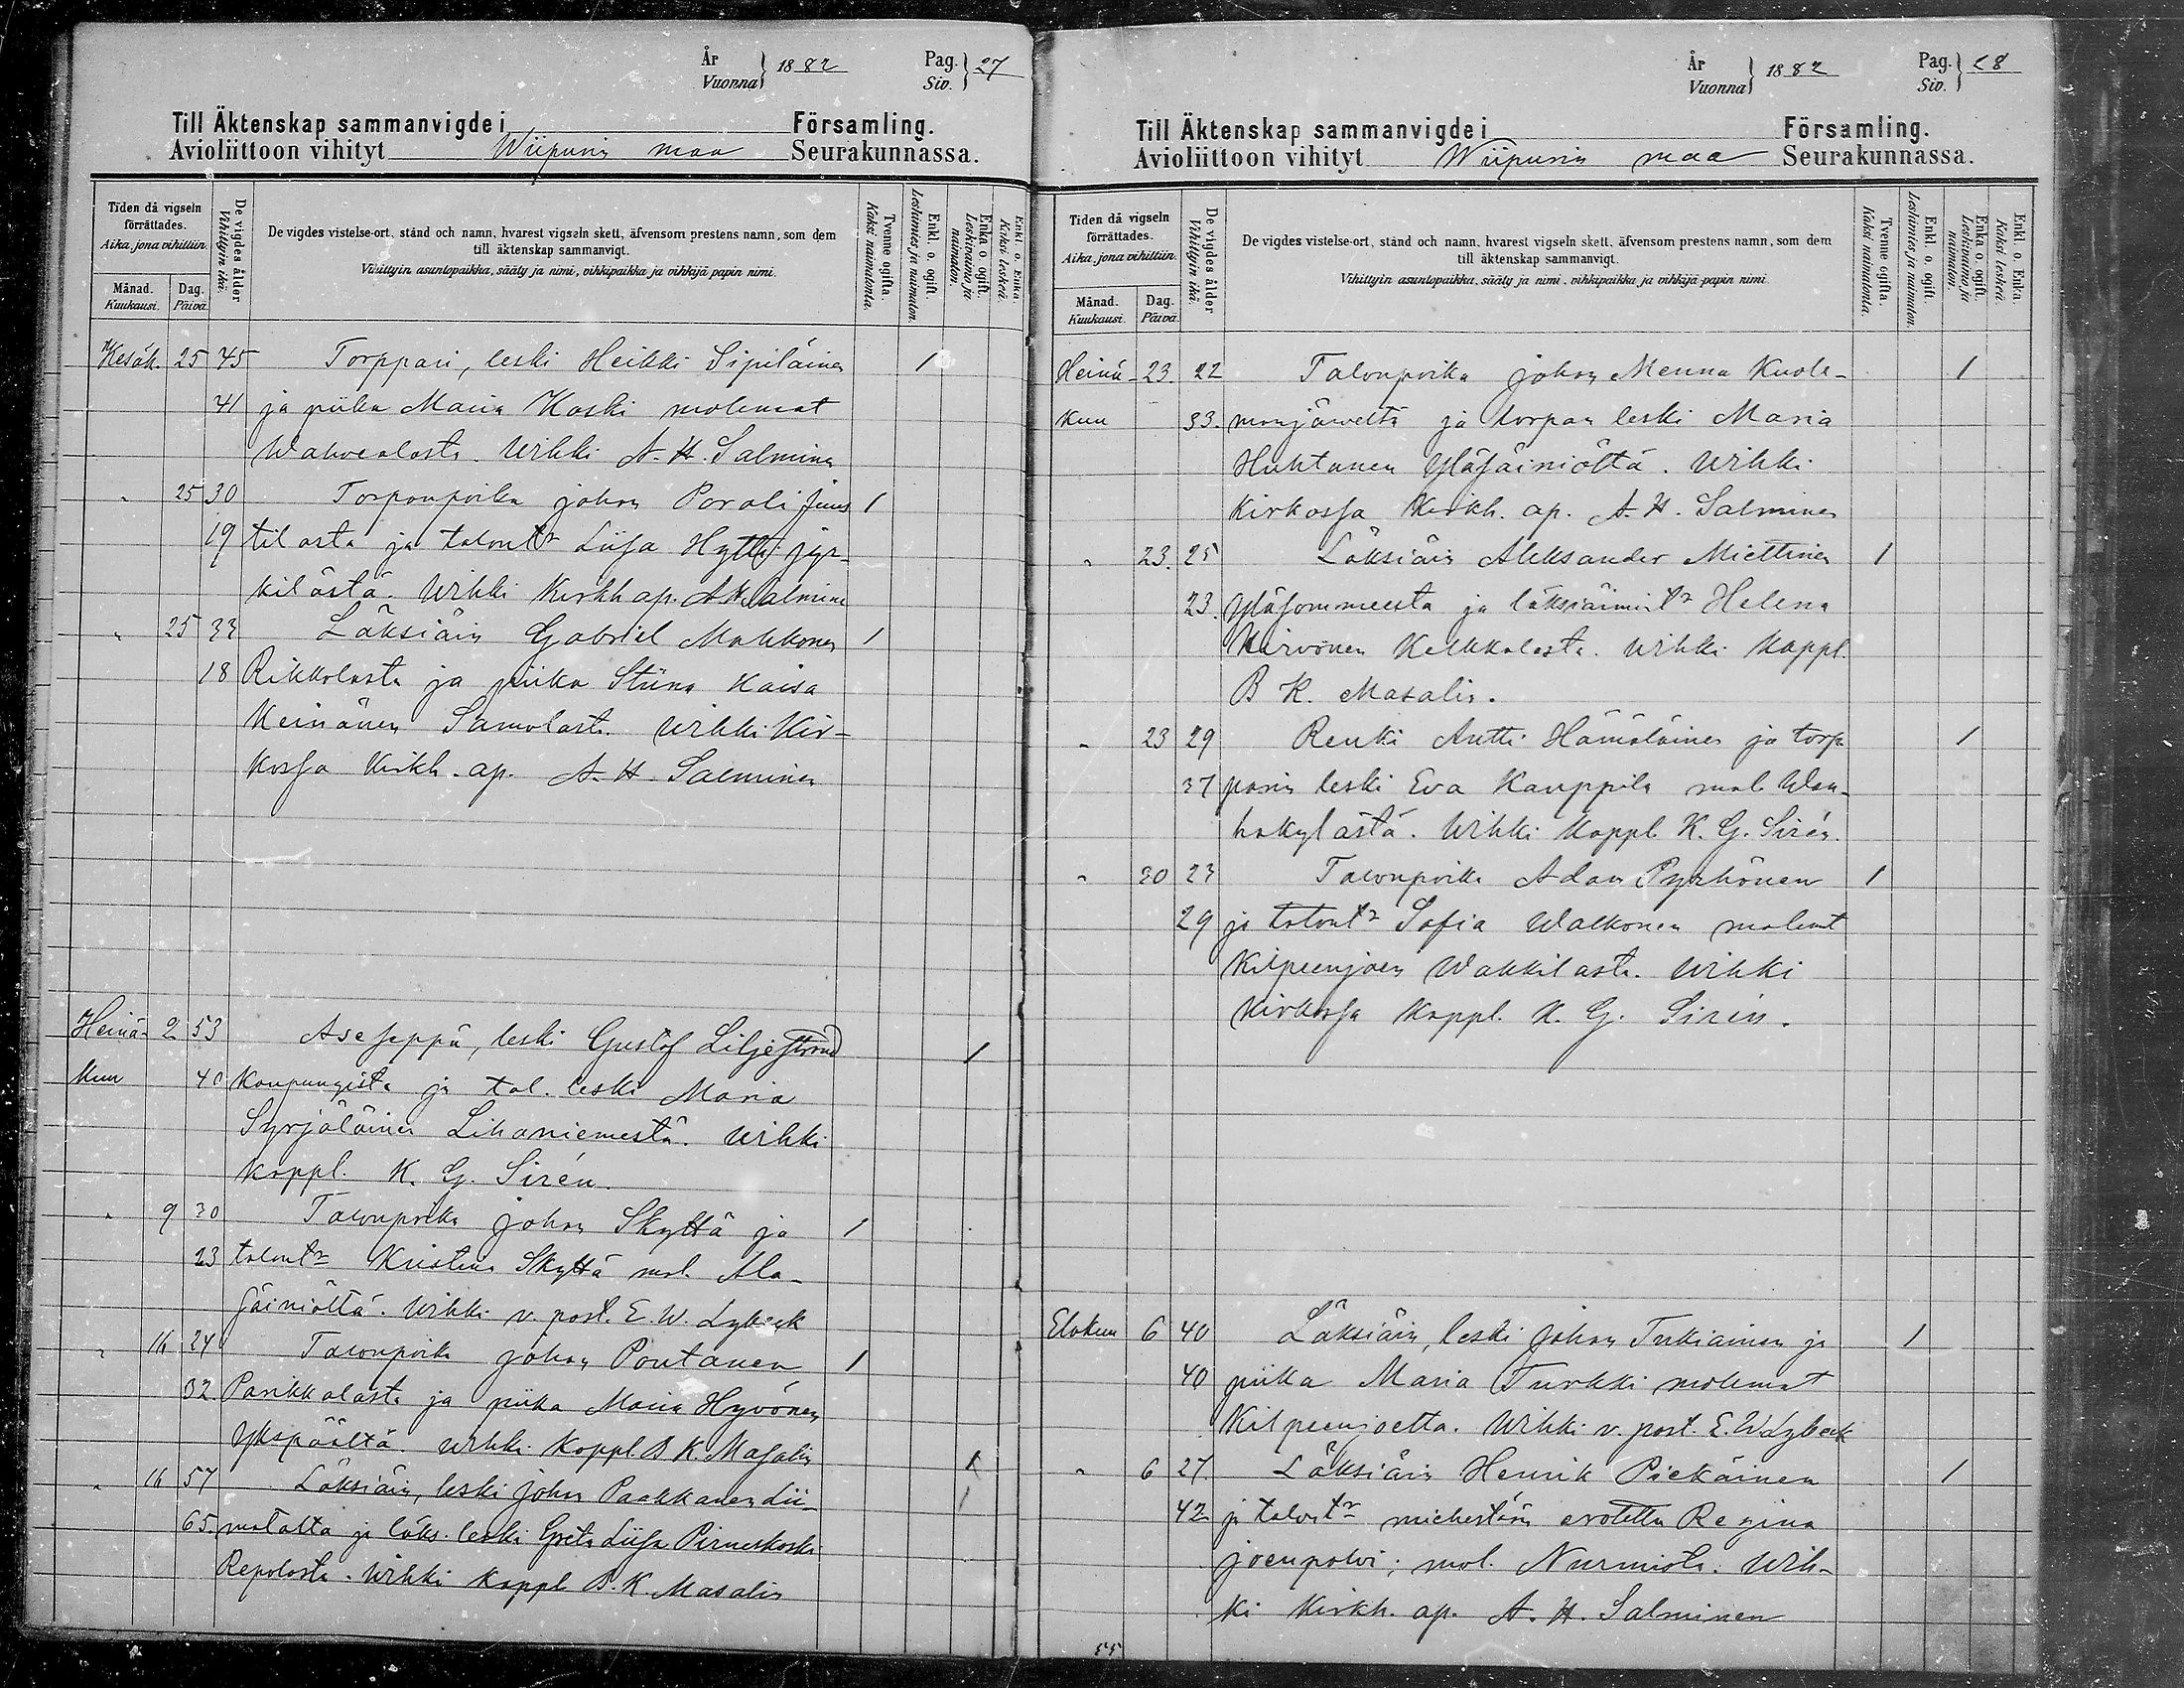 År
Vuonna } 1882
Pag.
Siv. } 27
Till Äktenskap sammanvigde i Församling.
Avioliittoon vihityt Wiipurin maa Seurakunnassa.
Tiden då vigseln förrättades.
Aika, jona vihittiin.
Månad.
Kuukausi.
Dag.
Päivä.
De vigdes ålder
Vihittyin ikä.
De vigdes vistelse-ort, stånd och namn, hvarest vigseln skett, äfvensom prestens namn, som dem
till äktenskap sammanvigt.
Vihittyin asuntopaikka, sääty ja nimi, vihkipaikka ja vihkijä papin nimi.
Tvenne ogifta.
Kaksi naimatonta.
Enkl. o. ogift.
Leskimies ja naimaton.
Enka o. ogift.
Leskivaimo ja naimaton.
Enkl. o. Enka.
Kaksi leskeä.
Kesäk. 25 45 Torppari, leski Heikki Sipiläinen 1
41 ja piika Maria Koski molemat
Wahvialasta. Wihki A. H. Salminen
" 25 30 Torpanpoika Johan Porali Juus 1
19 tilasta ja talont:r Liisa Hytti Jyr-
kilästä. Wihki Kirkh. ap. A H Salminen
" 25 33 Läksiäin Gabriel Mahkonen 1
18 Rikkolasta ja piika Stiina Kaisa
Keinänen Samolasta. Wihki Kir-
kossa Kirkh. ap. A. H. Salminen
Heinä- 2 53 Aseseppä, leski Gustaf Liljestrand 1
kuu 40 Kaupungista ja tal. leski Maria
Syrjäläinen Lihaniemestä. Wihki
Kappl. K. G. Sirén.
" 9 30 Talonpoika Johan Skyttä ja 1
23 talont:r Kristina Skyttä mol. Ala-
säiniöltä. Wihki v. past. E. W. Lybeck
" 16 24 Talonpoika Johan Pontanen 1
32. Parikkalasta ja piika Maria Hyvönen
Ykspäältä. Wihki Kappl. B K. Masalin
" 16 57 Läksiäin, leski Johan Paakkanen Lii- 1
65. matalta ja läks. leski Greta Liisa Pirneskoski
Repolasta. Wihki Kappl. B. K. Masalin
År
Vuonna } 1882
Pag.
Siv. } 28
Till Äktenskap sammanvigde i Församling.
Avioliittoon vihityt Wiipurin maa Seurakunnassa.
Tiden då vigseln förrättades.
Aika, jona vihittiin.
Månad.
Kuukausi.
Dag.
Päivä.
De vigdes ålder
Vihittyin ikä.
De vigdes vistelse-ort, stånd och namn, hvarest vigseln skett, äfvensom prestens namn, som dem
till äktenskap sammanvigt.
Vihittyin asuntopaikka, sääty ja nimi, vihkipaikka ja vihkijä papin nimi.
Tvenne ogifta.
Kaksi naimatonta.
Enkl. o. ogift.
Leskimies ja naimaton.
Enka o. ogift.
Leskivaimo ja naimaton.
Enkl. o. Enka.
Kaksi leskeä.
Heinä- 23. 22 Talonpoika Johan Menna Kuole- 1
kuu 33. manjärveltä ja torpan leski Maria
Huhtanen Yläsäiniöltä. Wihki
Kirkossa Kirkh. ap. A. H. Salminen
" 23. 25 Läksiäin Aleksander Miettinen 1
23. Yläsommeesta ja läksiäimit:r Helena
Hirvönen Kelkkalasta. Wihki Kappl.
B K. Masalin.
" 23 29 Renki Antti Hämäläinen ja torp 1
37 parin leski Eva Kauppila mol. Wan-
hakylästä. Wihki Kappl. K. G. Sirén.
" 30 23 Talonpoika Adam Pyrhönen 1
29 ja talont:r Sofia Walkonen molemt
Kilpeenjoen Wakkilasta. Wihki
Kirkossa Kappl. K. G. Sirén.
Elokuu 6 40 Läksiäin, leski Johan Tukiainen ja 1
40 piika Maria Turkki molemat
Kilpeenjoelta. Wihki v. past. E. W. Lybeck
" 6 27. Läksiäin Henrik Piekäinen 1
42 ja talont:r miehestään erotettu Regina
Joenpolvi; mol. Nurmista. Wih-
ki Kirkh. ap. A. H. Salminen
55